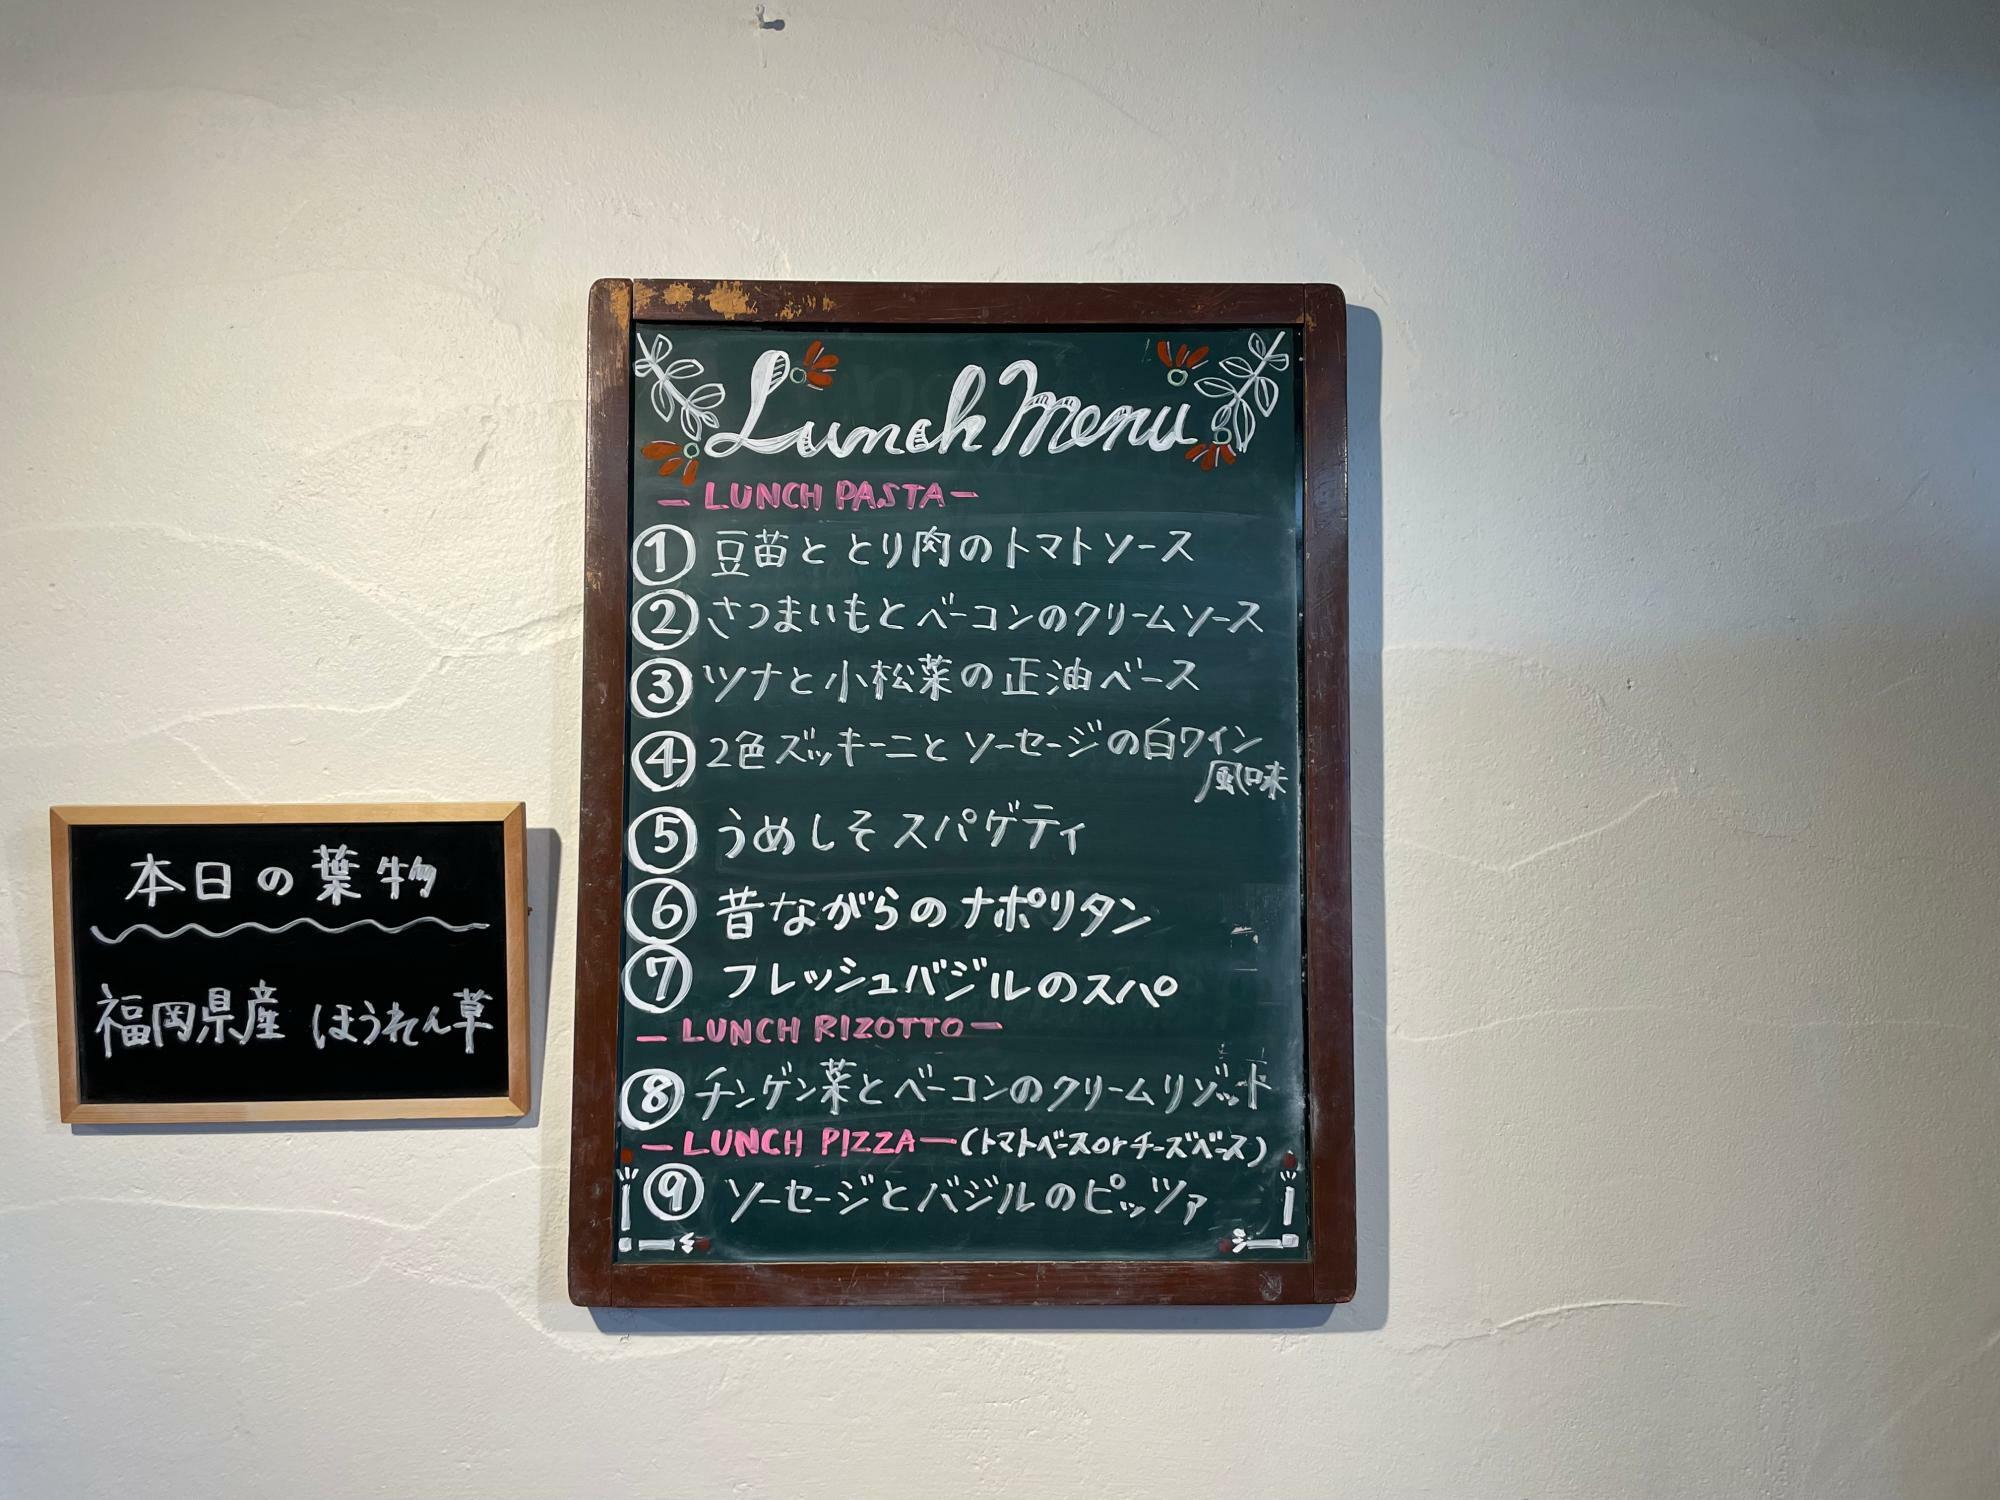 Lunch Menu
— LUNCH PASTA —
① 豆苗ととり肉のトマトソース
② さつまいもとベーコンのクリームソース
③ ツナと小松菜の正油ベース
④ 2色ズッキーニとソーセージの白ワイン
風味
⑤ うめしそスパゲティ
⑥ 昔ながらのナポリタン
⑦ フレッシュバジルのスパ
— LUNCH RIZOTTO —
⑧ チンゲン菜とベーコンのクリームリゾット
— LUNCH PIZZA — (トマトベースorチーズベース)
⑨ ソーセージとバジルのピッツァ
本日の葉物
福岡県産 ほうれん草